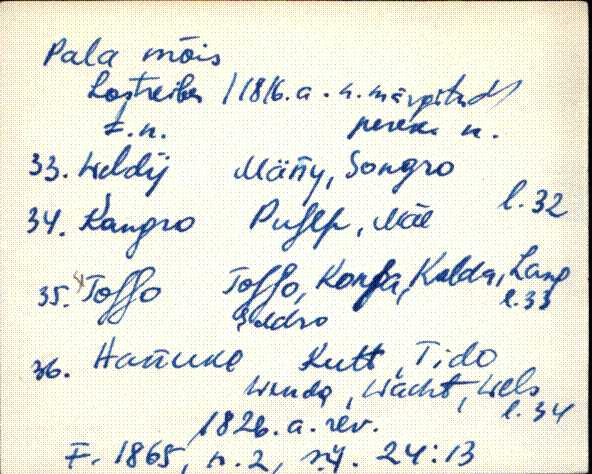 Pala mõis
Lostreiber /1816.a. n. märgitud/
t.n. perek. n.
33. Weldij Männy, Songro
l.32
34. Kangro Pussep, Mäe
35. Tosso Tosso, Konsa, Kalda, Lang
l.33
Soldro
36. Hannuke Kutt, Tido
Wenda, Wächt, Wels
l.34
1826.a.rev.
F. 1865, n.2, sý. 24:13